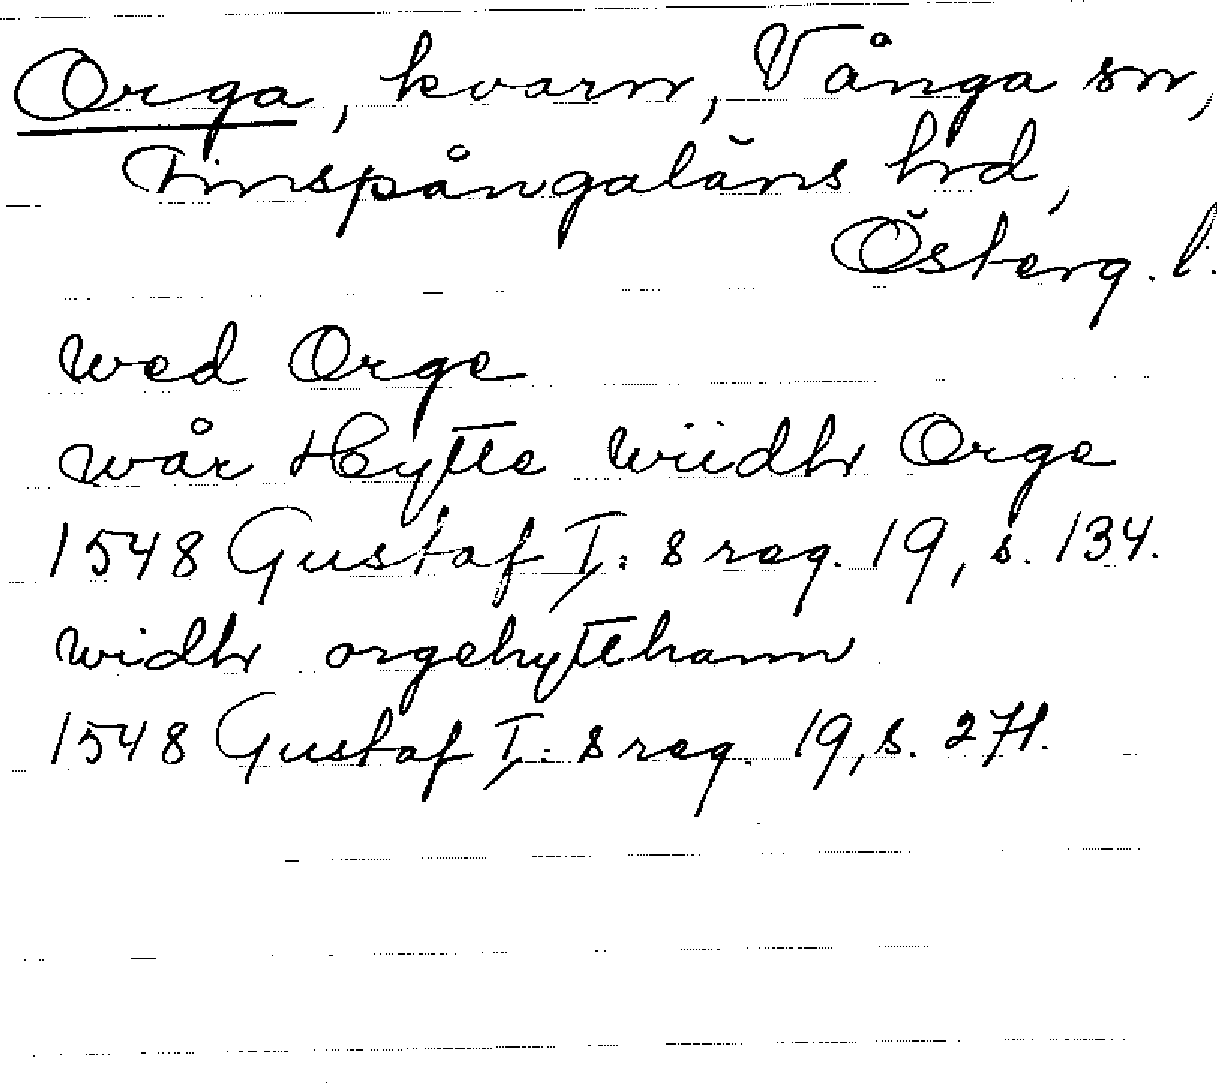 Orga, kvarn, Vånga sn,
Finspångaläns hrd,
Österg. l.
wed Orge
wår Hytte wiidh Orge
1548 Gustaf I:s reg. 19, s. 134.
widh orgehytthann
1548 Gustaf I:s reg. 19, s. 271.